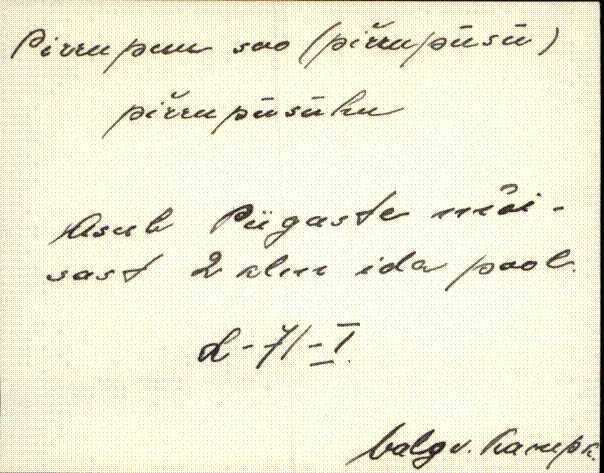 Pirrupuu soo (piŕŕupüsü)
piŕŕupüsühu
Asub Piigaste mõi-
sast 2 klm ida pool.
L-71-I.
Valgv. Kanepk.